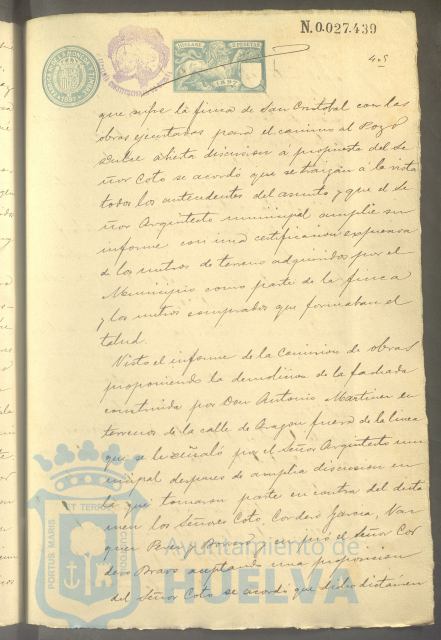 N.0.027.439
que sufre la finca de San Cristobal con las
obras ejecutadas para el camino al Pozo
Dulce abierta discusion á propuesta del Se
ñor Coto se acordó que se traigan á la vista
todos los antecedentes del asunto y que el Se
ñor Arquitecto municipal amplie su
informe con una certificacion expresiva
de los metros de terreno adquiridos por el
Municipio como parte de la finca
y los metros comprados que formaban el
talud.
Visto el informe de la Comision de obras
proponiendo la demolicion de la fachada
construida por Don Antonio Martinez en
terrenos de la calle de Aragon fuera de la linea
que se le señaló por el Señor Arquitecto mu
nicipal despues de amplia discusion en
la que tomaron parte en contra del dicta
men los Señores Coto, Cordero Garcia, Vaz
quez Perez y Bravo y en pró el Señor Cor
dero Bravo aceptando una proposicion
del Señor Coto se acordó que dicho dictamen
PORTUS MARIS ET TERRAE CUSTODIA
Ayuntamiento de
HUELVA